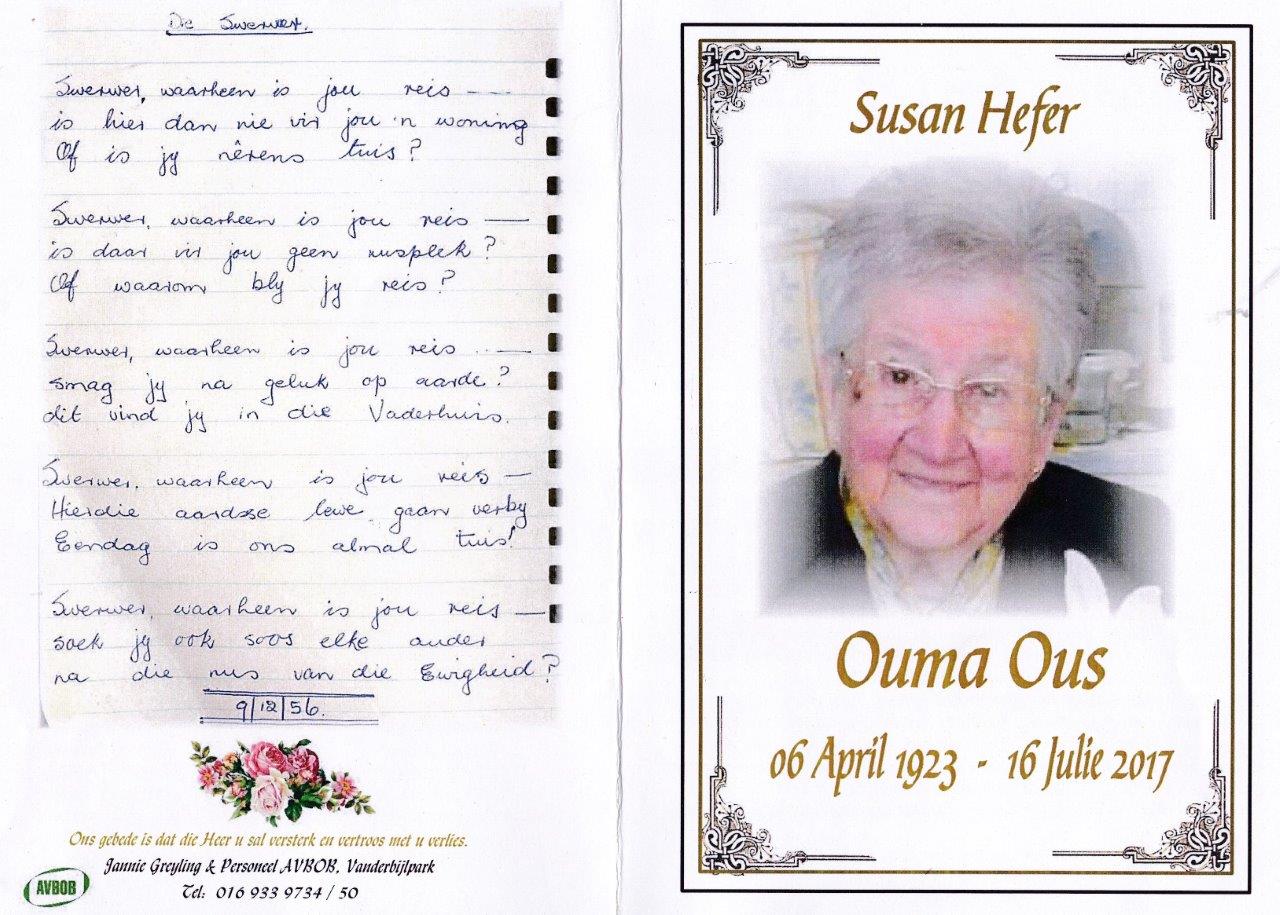 De Swerwer.
Swerwer, waarheen is jou reis ---
is hier dan nie vir jou 'n woning
Of is jy nêrens tuis?
Swerwer, waarheen is jou reis —
is daar vir jou geen rusplek?
Of waarom bly jy reis?
Swerwer, waarheen is jou reis ..—
smag jy na geluk op aarde?
dit vind jy in die Vaderhuis.
Swerwer, waarheen is jou reis —
Hierdie aardse lewe gaan verby
Eendag is ons almal tuis!
Swerwer, waarheen is jou reis —
soek jy ook soos elke ander
na die rus van die Ewigheid?
9/12/56.
Ons gebede is dat die Heer u sal versterk en vertroos met u verlies.
Jannie Greyling & Personeel AVBOB, Vanderbijlpark
AVBOB
Tel: 016 933 9734 / 50
Susan Hefer
Ouma Ous
06 April 1923 - 16 Julie 2017